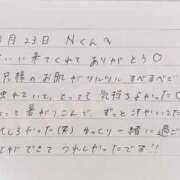 月23日 Nくんへ
いに来てくれてありがとう♡
兄様のお肌がツルツルすべすべで
触れていて、とっても気持ちよかった♡
って暑がりさんで、ずっと汗かいてた
れしろかった(笑) ゆっくり一緒に過ご
とができてうれしかったです!!